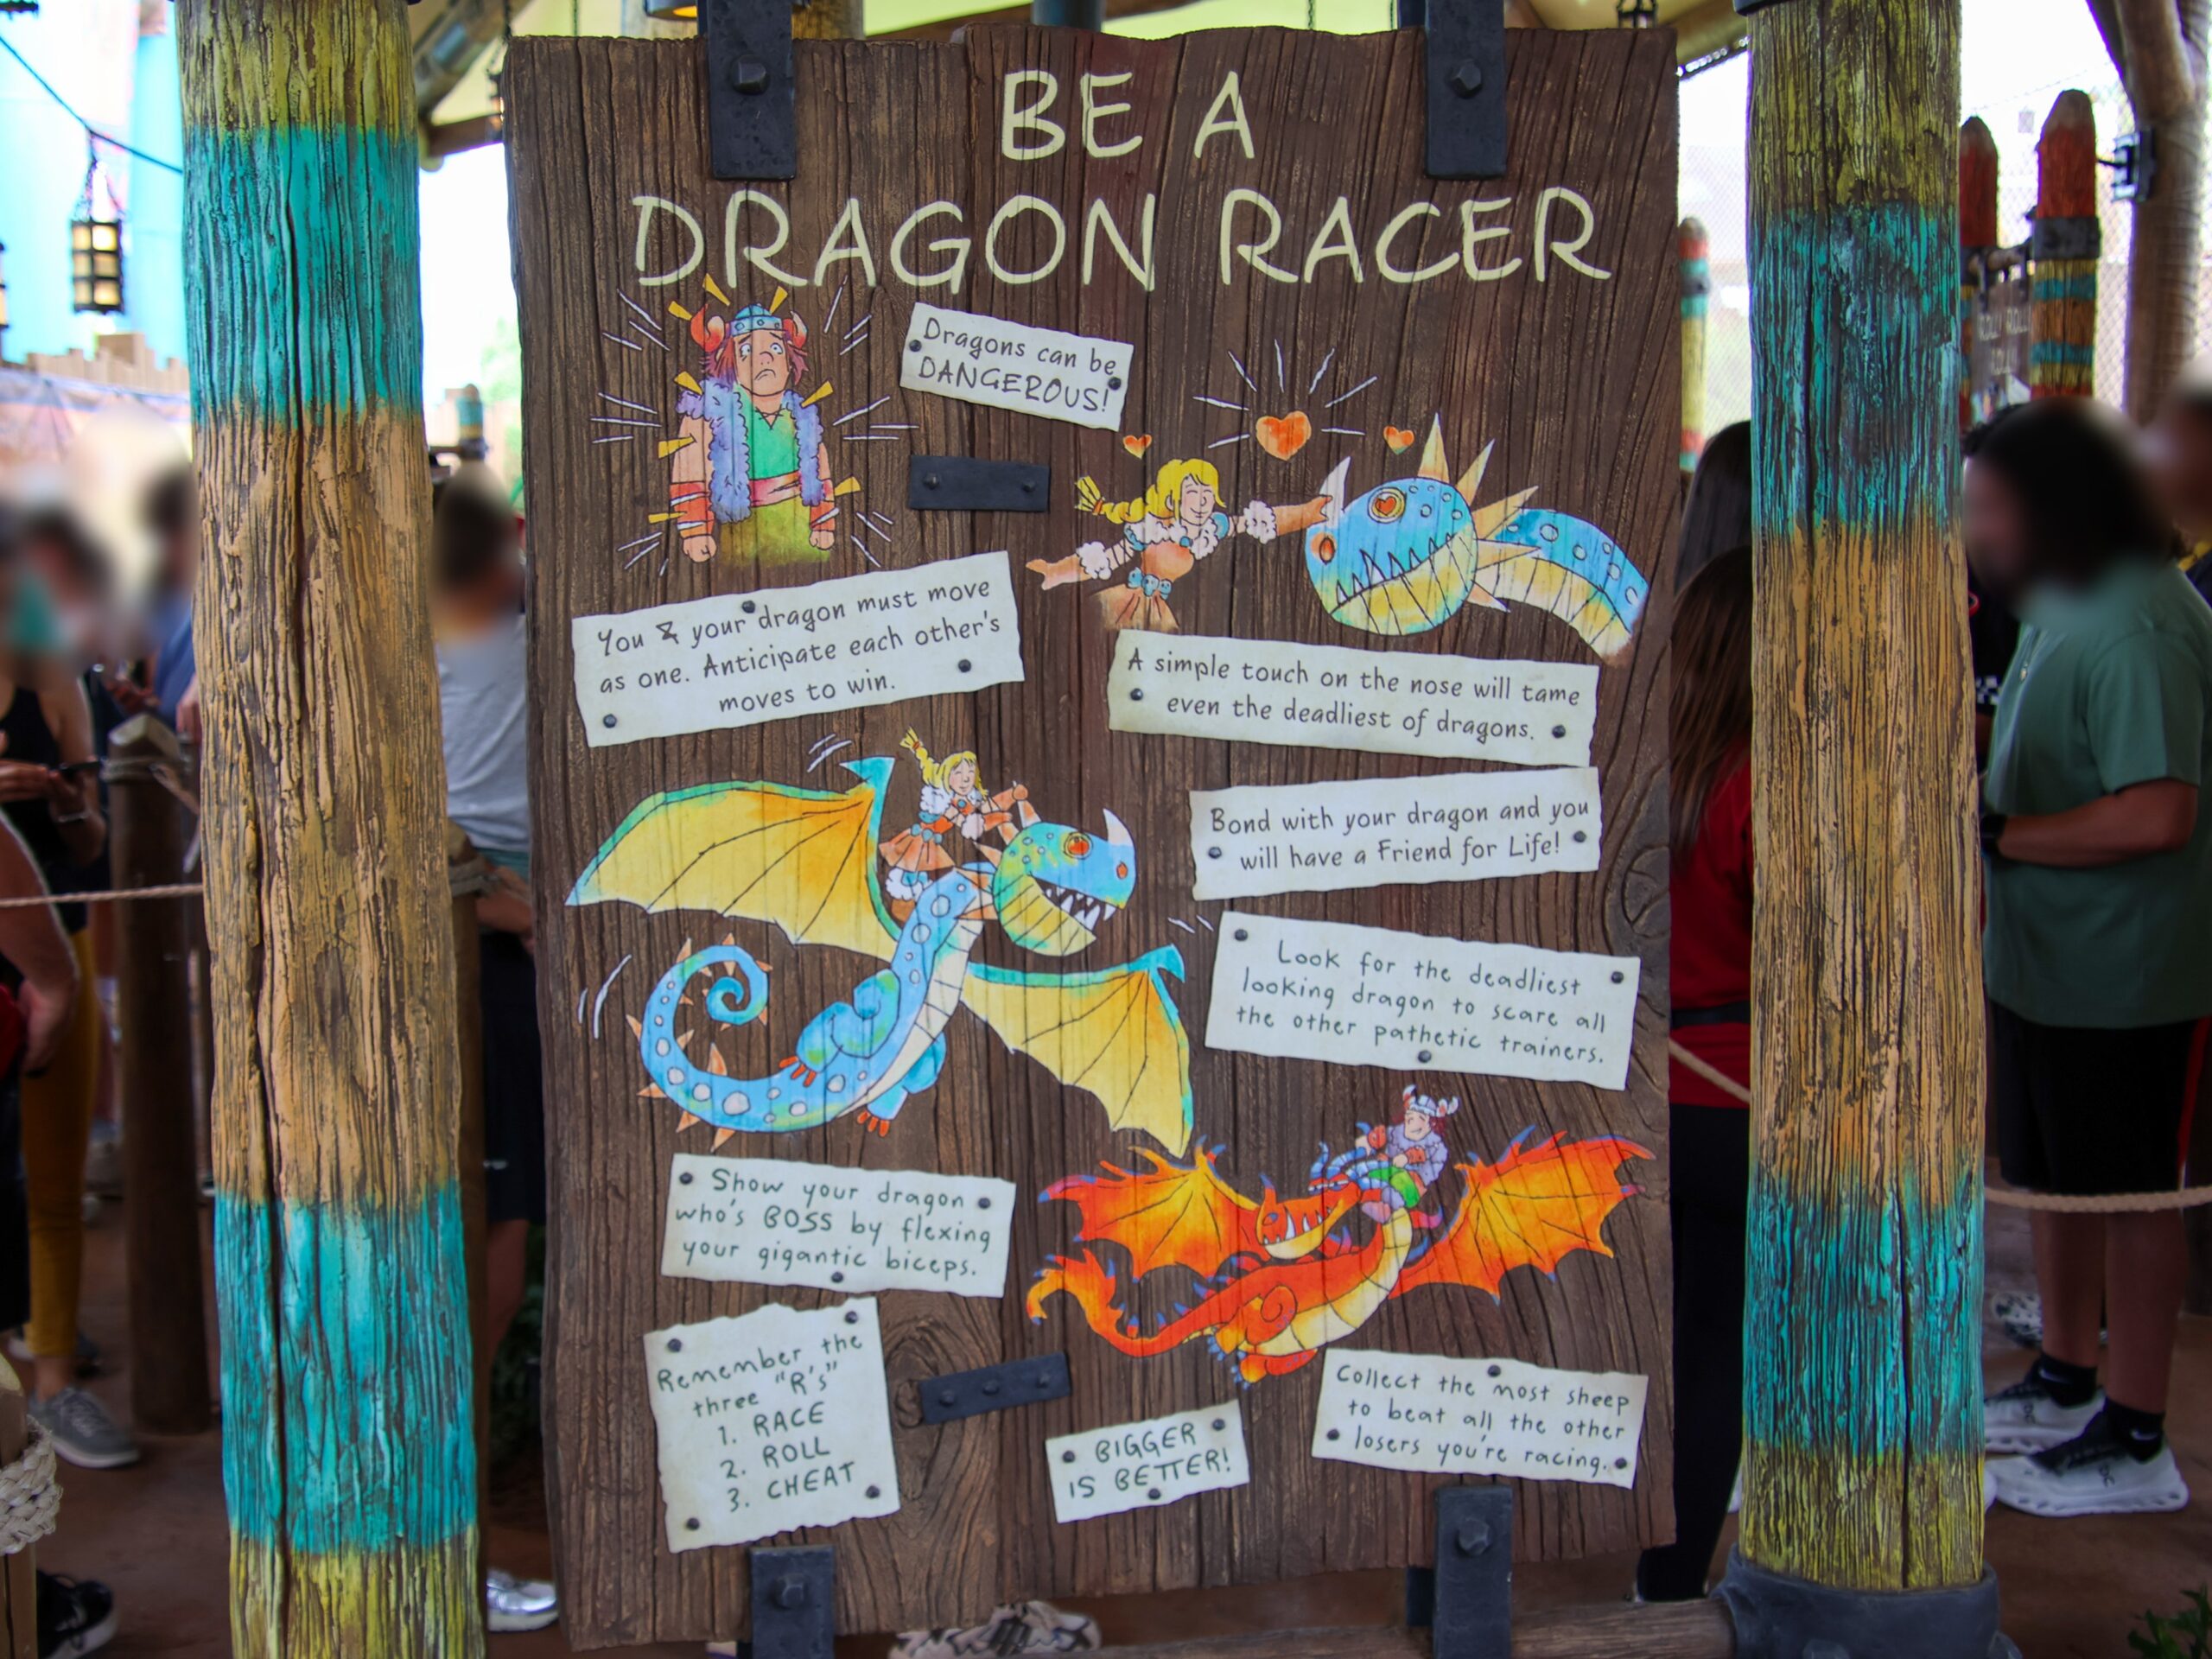 BE A
DRAGON RACER
Dragons can be
DANGEROUS!
You & your dragon must move
as one. Anticipate each other's
moves to win.
A simple touch on the nose will tame
even the deadliest of dragons.
Bond with your dragon and you
will have a Friend for Life!
Look for the deadliest
looking dragon to scare all
the other pathetic trainers.
Show your dragon
who's BOSS by flexing
your gigantic biceps.
Remember the
three "R's"
1. RACE
2. ROLL
3. CHEAT
BIGGER
IS BETTER!
Collect the most sheep
to beat all the other
losers you're racing.